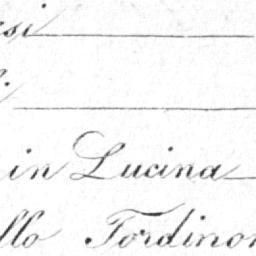 esi
i
in Lucina
ello Tordinon